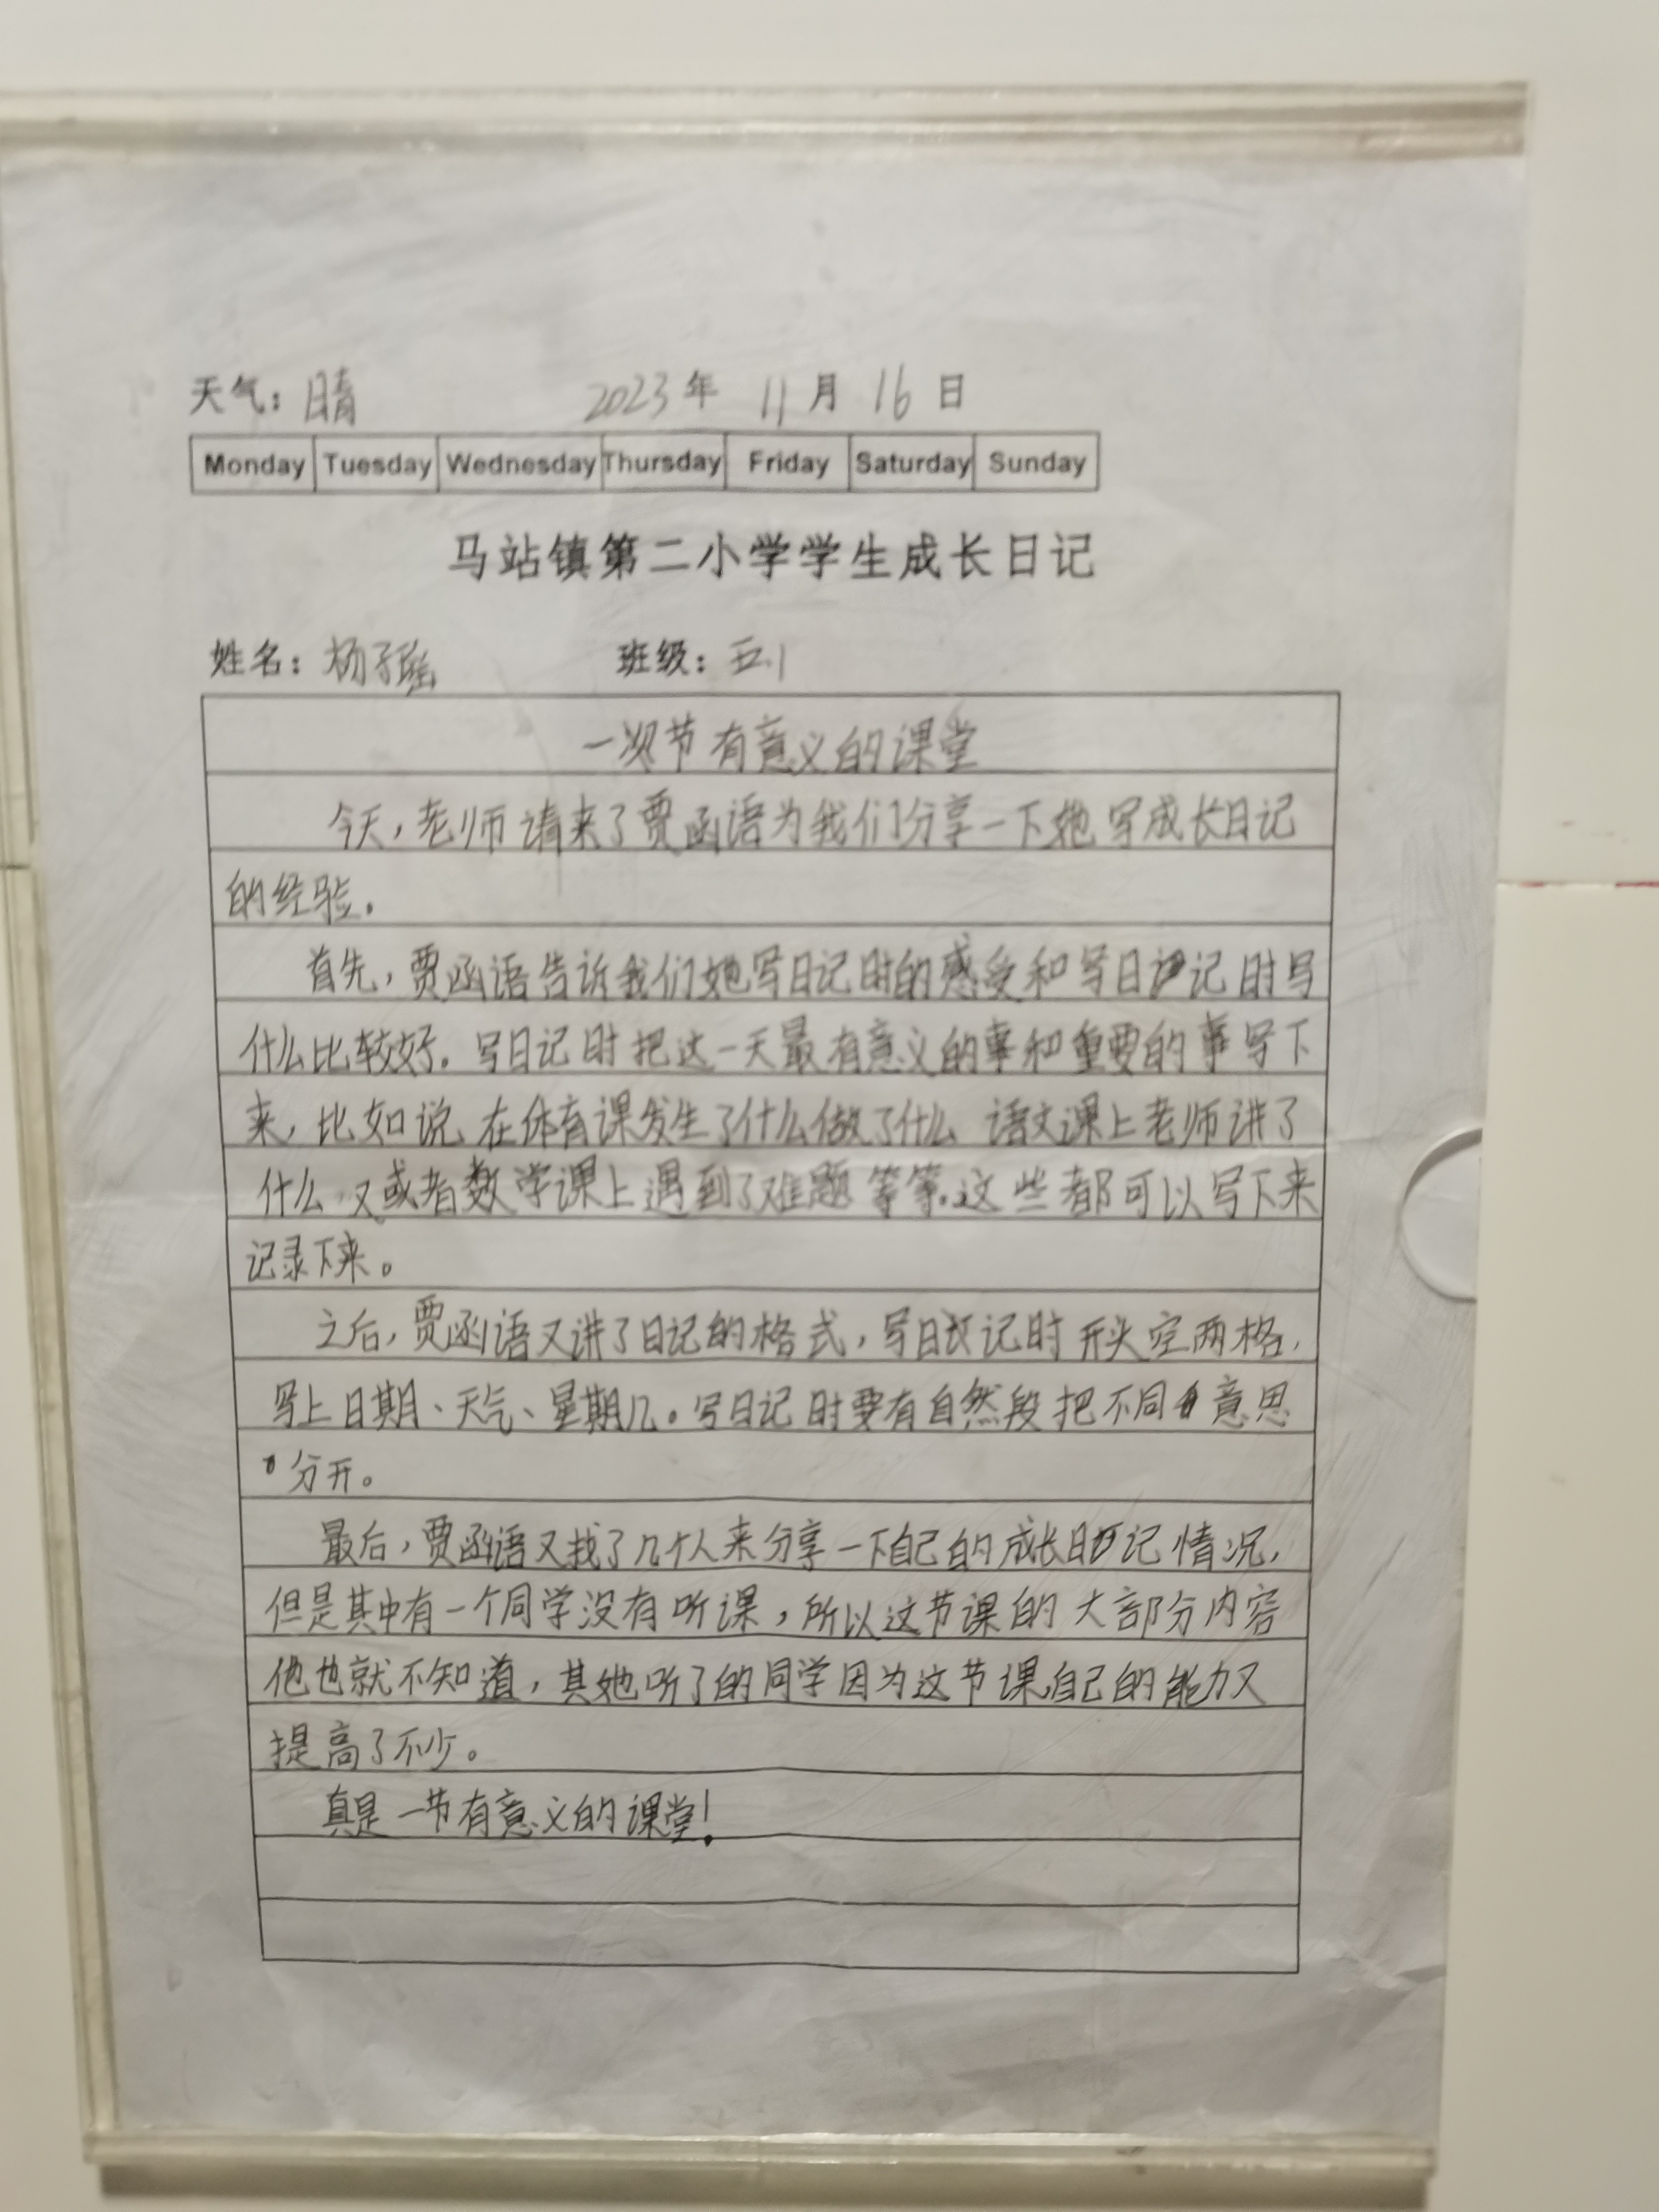 天气：晴 2023年 11月 16日
Monday Tuesday Wednesday Thursday Friday Saturday Sunday
马站镇第二小学学生成长日记
姓名：杨子瑶 班级：五.1
一节有意义的课堂
今天，老师请来了贾函语为我们分享一下她写成长日记
的经验。
首先，贾函语告诉我们她写日记时的感受和写日记时写
什么比较好。写日记时把这一天最有意义的事和重要的事写下
来，比如说，在体育课发生了什么做了什么 语文课上老师讲了
什么，又或者数学课上遇到了难题等等。这些都可以写下来
记录下来。
之后，贾函语又讲了日记的格式，写日记时开头空两格，
写上日期、天气、星期几。写日记时要有自然段把不同意思
分开。
最后，贾函语又找了几个人来分享一下自己的成长日记情况，
但是其中有一个同学没有听课，所以这节课的大部分内容
他也就不知道，其她听了的同学因为这节课自己的能力又
提高了不少。
真是一节有意义的课堂！